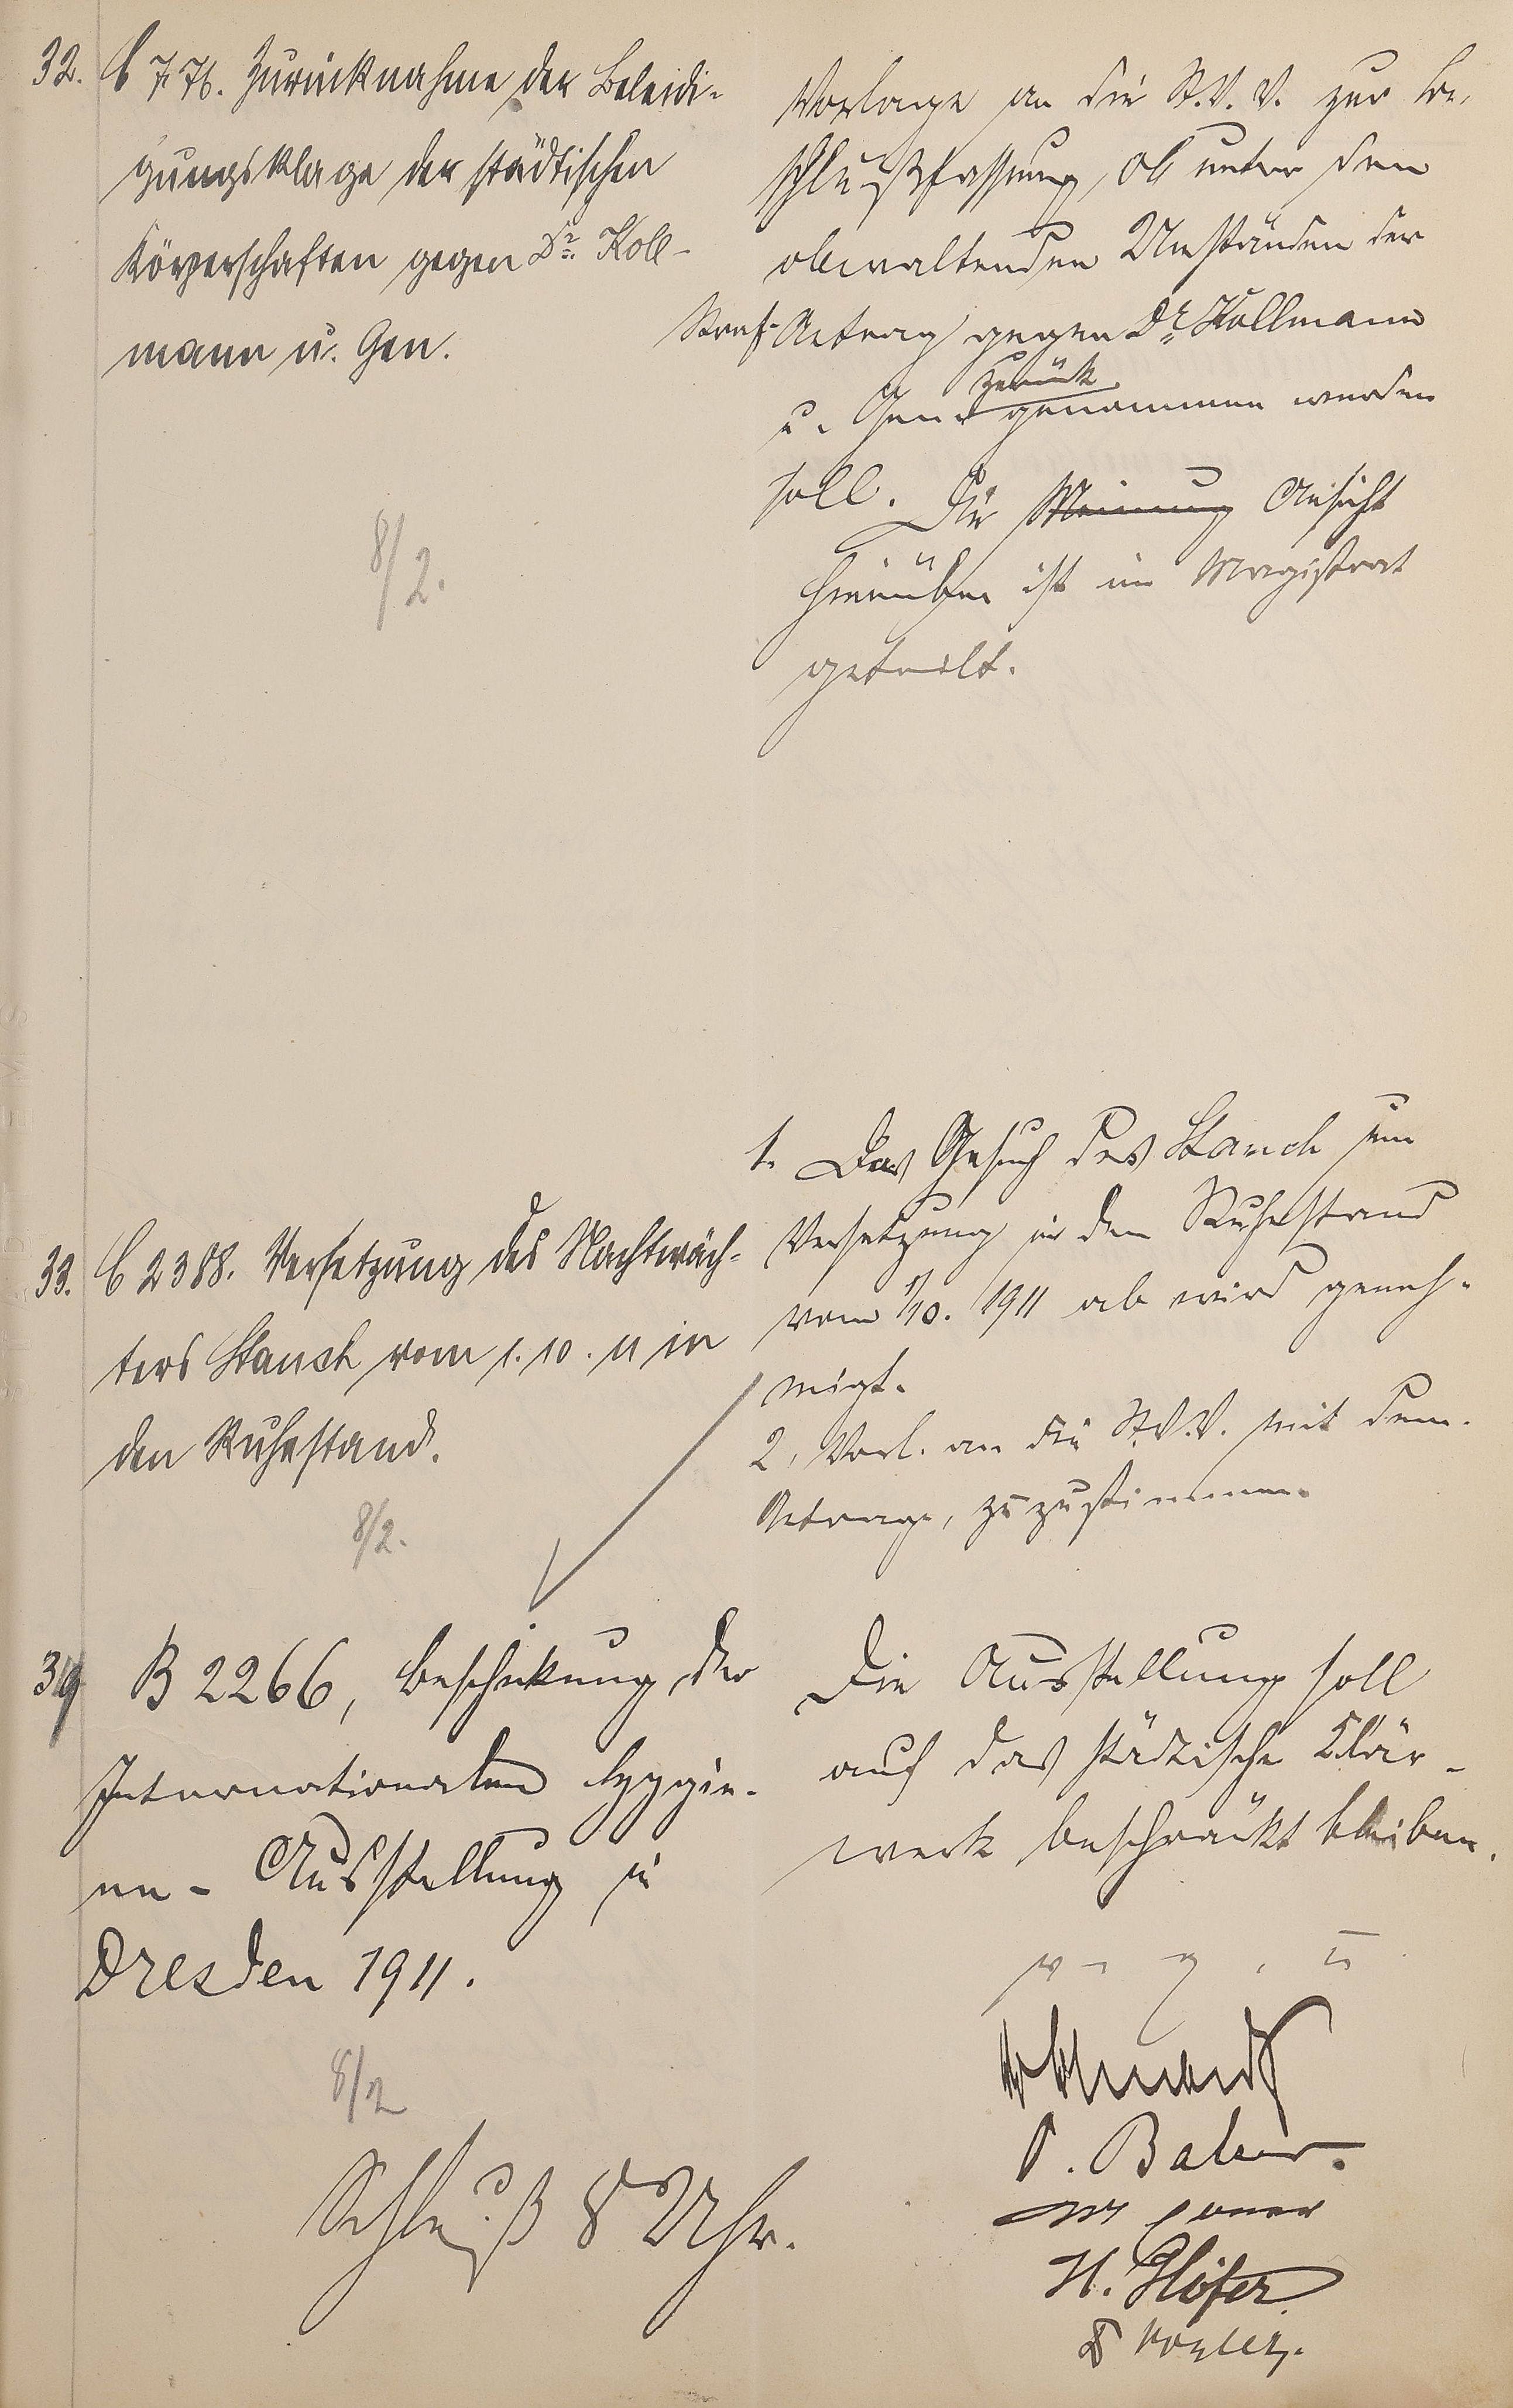 32. C 776. Zurücknahme der Beleidi-
gungsklage der städtischen
Körperschaften gegen Dr. Koll-
mann u. Gen.
8/2.
Vorlage an die St.V.V. zur Be-
schlußfassung, ob unter den
obwaltenden Umständen der
Straf-Antrag gegen Dr. Kollmann
zurück
u. Gen. genommen werden
soll. Die Meinung Ansicht
hierüber ist im Magistrat
geteilt.
33. C 2388. Versetzung des Nachtwäch-
ters Stauch vom 1.10.11 in
den Ruhestand.
8/2.
1. Das Gesuch des Stauch um
Versetzung in den Ruhestand
vom 1/10. 1911 ab wird geneh-
migt.
2, Vorl. an die St.V.V. mit dem
Antrage, zuzustimmen.
34 B 2266, Beschickung der
Internationalen Hygie-
ne-Ausstellung in
Dresden 1911.
8/2
Die Ausstellung soll
auf das städtische Klär-
werk beschränkt bleiben.
v. g. u.
Schluß 8 Uhr.
H. Höfer